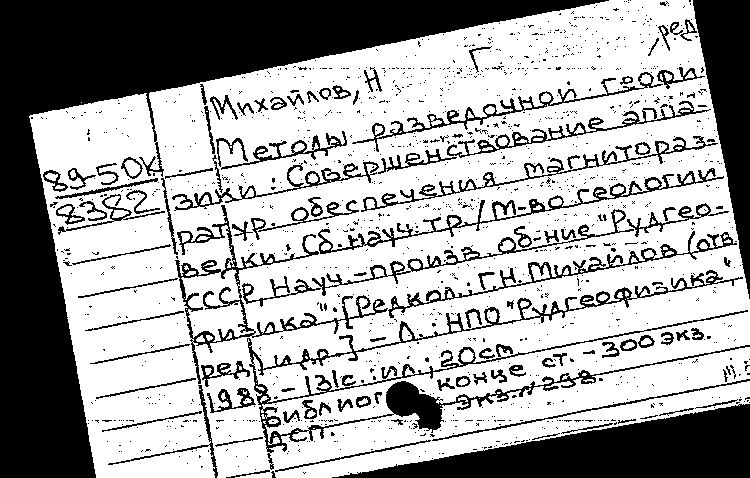 Михайлов, Н Г ,ред
Методы разведочной геофи
89-50К
8382
зики: Совершенствование аппа-
ратур. обеспечения магнитораз-
ведки: Сб. науч. тр. / М-во геологии
СССР, Науч.-произв. об-ние "Рудгео-
физика"; [Редкол.: Г.Н. Михайлов (отв.
ред.) и др.] - Л.: НПО "Рудгеофизика",
1988 - 131с.: ил.; 20cm
Библиог конце ст. - 300 экз.
Экз. № 298.
ДСП.